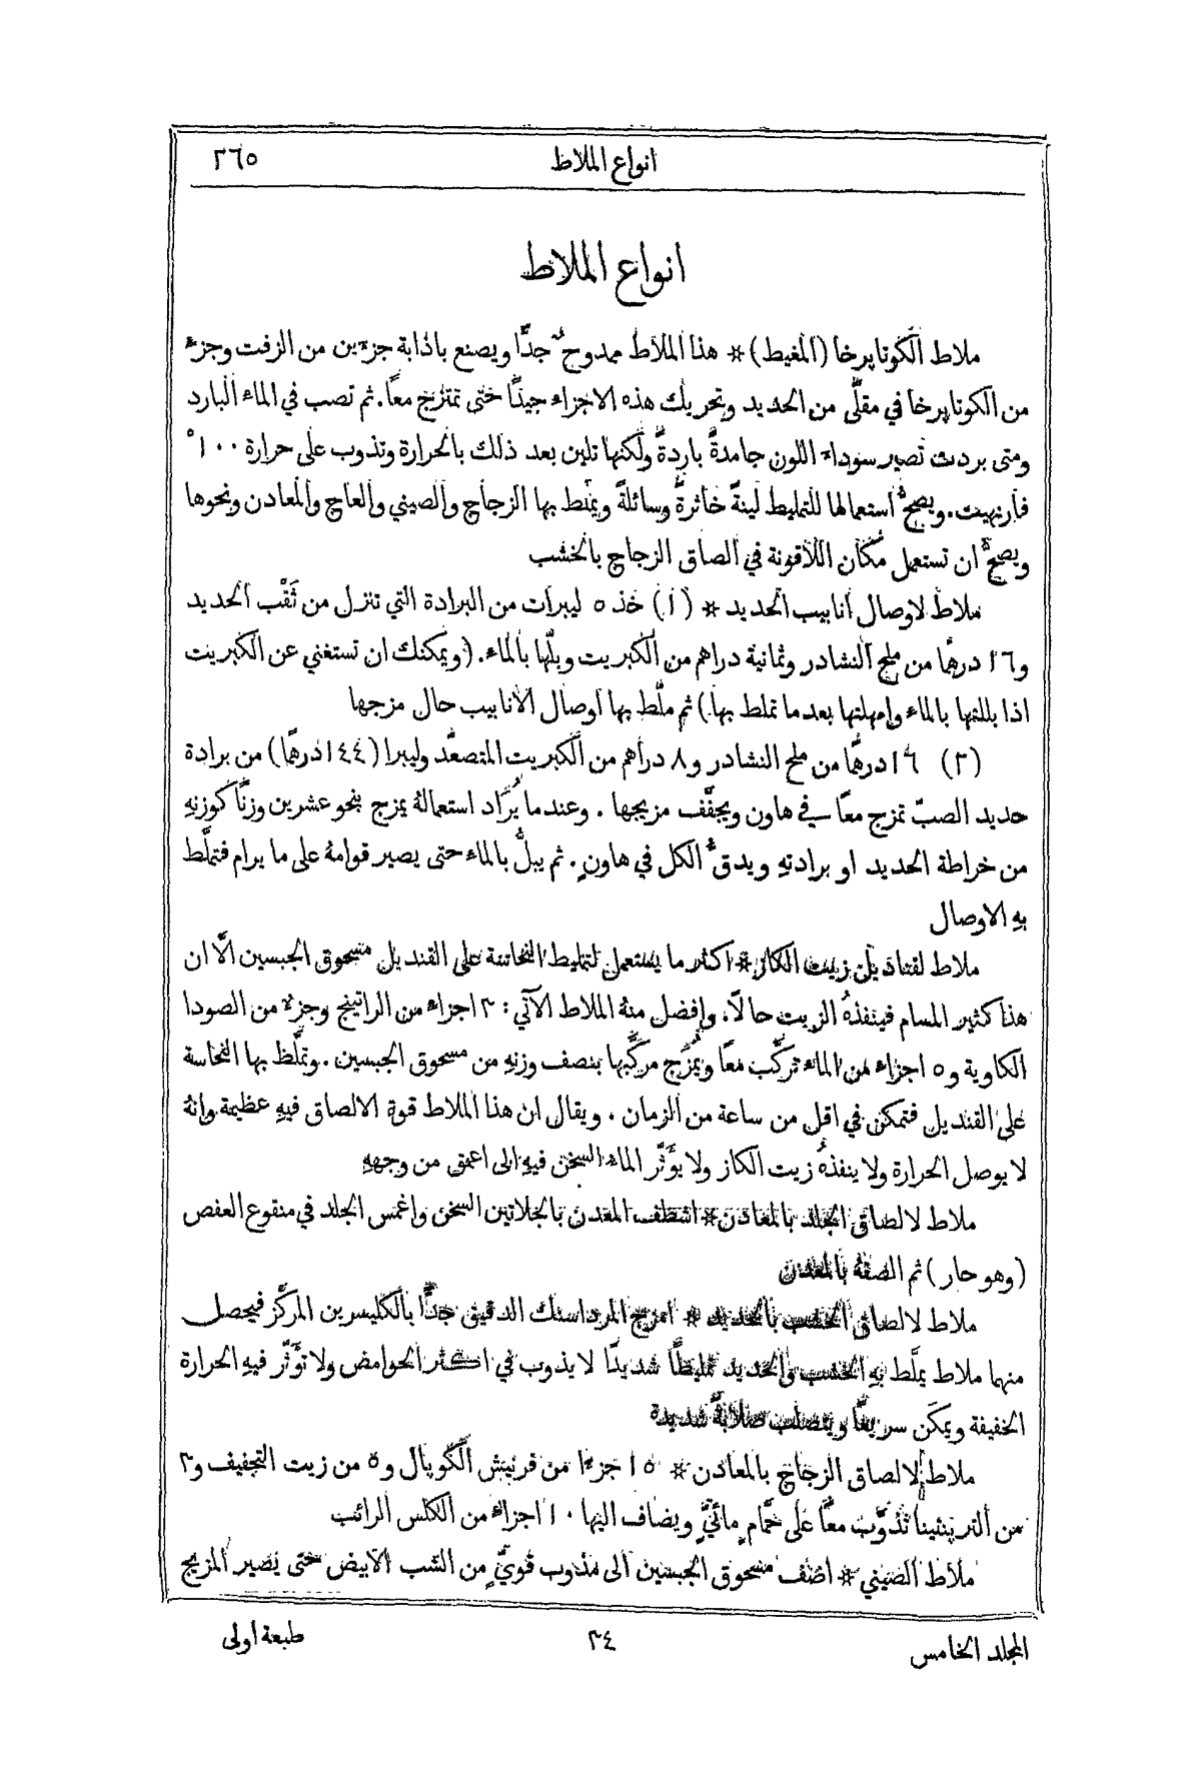 انواع الملاط ٢٦٥
انواع الملاط
ملاط الكوتابرخا (المغيط) * هذا الملاط ممدوحٌ جدًّا ويصنع باذابة جزءين من الزفت وجزء
من الكوتابرخا في مقلًى من الحديد وتحريك هذه الاجزاء جيدًا حتى تمتزج معًا. ثم تصب في الماء البارد
ومتى بردت تصير سوداء اللون جامدةً باردةً ولكنها تلين بعد ذلك بالحرارة وتذوب على حرارة ١٠٠°
فارنهيت. ويصحُّ استعمالها للتمليط لينةً خاثرةً وسائلةً ويملط بها الزجاج والصيني والعاج والمعادن ونحوها
ويصحُّ ان تستعمل مكان اللاقونة في الصاق الزجاج بالخشب
ملاط لاوصال انابيب الحديد * (١) خذ ٥ ليبرات من البرادة التي تنزل من ثَقْب الحديد
و١٦ درهمًا من ملح النشادر وثمانية دراهم من الكبريت وبلّها بالماء. (ويمكنك ان تستغني عن الكبريت
اذا بللتها بالماء وامهلتها بعد ما تملط بها) ثم ملّط بها اوصال الانابيب حال مزجها
(٢) ١٦ درهمًا من ملح النشادر و٨ دراهم من الكبريت المتصعّد وليبرا (١٤٤ درهمًا) من برادة
حديد الصبّ تمزج معًا في هاون ويجفَّف مزيجها . وعندما يُرَاد استعمالهُ يمزج بنحو عشرين وزنًا كوزنهِ
من خراطة الحديد او برادتهِ ويدقُّ الكل في هاونٍ . ثم يبلُّ بالماء حتى يصير قوامهُ على ما يرام فتملَّط
بهِ الاوصال
ملاط لقناديل زيت الكاز * اكثر ما يستعمل لتمليط النحاسة على القنديل مسحوق الجبسين الّا ان
هذا كثير المسام فينفذهُ الزيت حالًا. وافضل منهُ الملاط الآتي: ٣ اجزاء من الراتينج وجزء من الصودا
الكاوية و٥ اجزاء من الماء تركَّب معًا ويُمزَج مركَّبها بنصف وزنهِ من مسحوق الجبسين . وتملَّط بها النحاسة
على القنديل فتمكن في اقل من ساعة من الزمان . ويقال ان هذا الملاط قوة الالصاق فيهِ عظيمة وانهُ
لا يوصل الحرارة ولا ينفذهُ زيت الكاز ولا يؤَثّر الماء السخن فيهِ الى اعمق من وجههِ
ملاط لالصاق الجلد بالمعادن * اشطف المعدن بالجلاتين السخن واغمس الجلد في منقوع العفص
(وهو حار) ثم الصقهُ بالمعدن
ملاط لالصاق الخشب بالحديد * امزج المرداسنك الدقيق جدًّا بالكليسرين المركَّز فيحصل
منها ملاط يملَّط بهِ الخشب والحديد تمليطًا شديدًا لا يذوب في اكثر الحوامض ولا تؤَثّر فيهِ الحرارة
الخفيفة ويمكَن سريعًا ويتصلب صلابةً شديدة
ملاط لالصاق الزجاج بالمعادن * ١٥ جزءا من فرنيش الكوبال و٥ من زيت التجفيف و٣
من التربنتينا تذوَّب معًا على حمَّام مائيٍّ ويضاف اليها ١٠ اجزاء من الكلس الرائب
ملاط الصيني * اضف مسحوق الجبسين الى مذوب قويٍّ من الشب الابيض حتى يصير المزيج
المجلد الخامس ٣٤ طبعة اولى